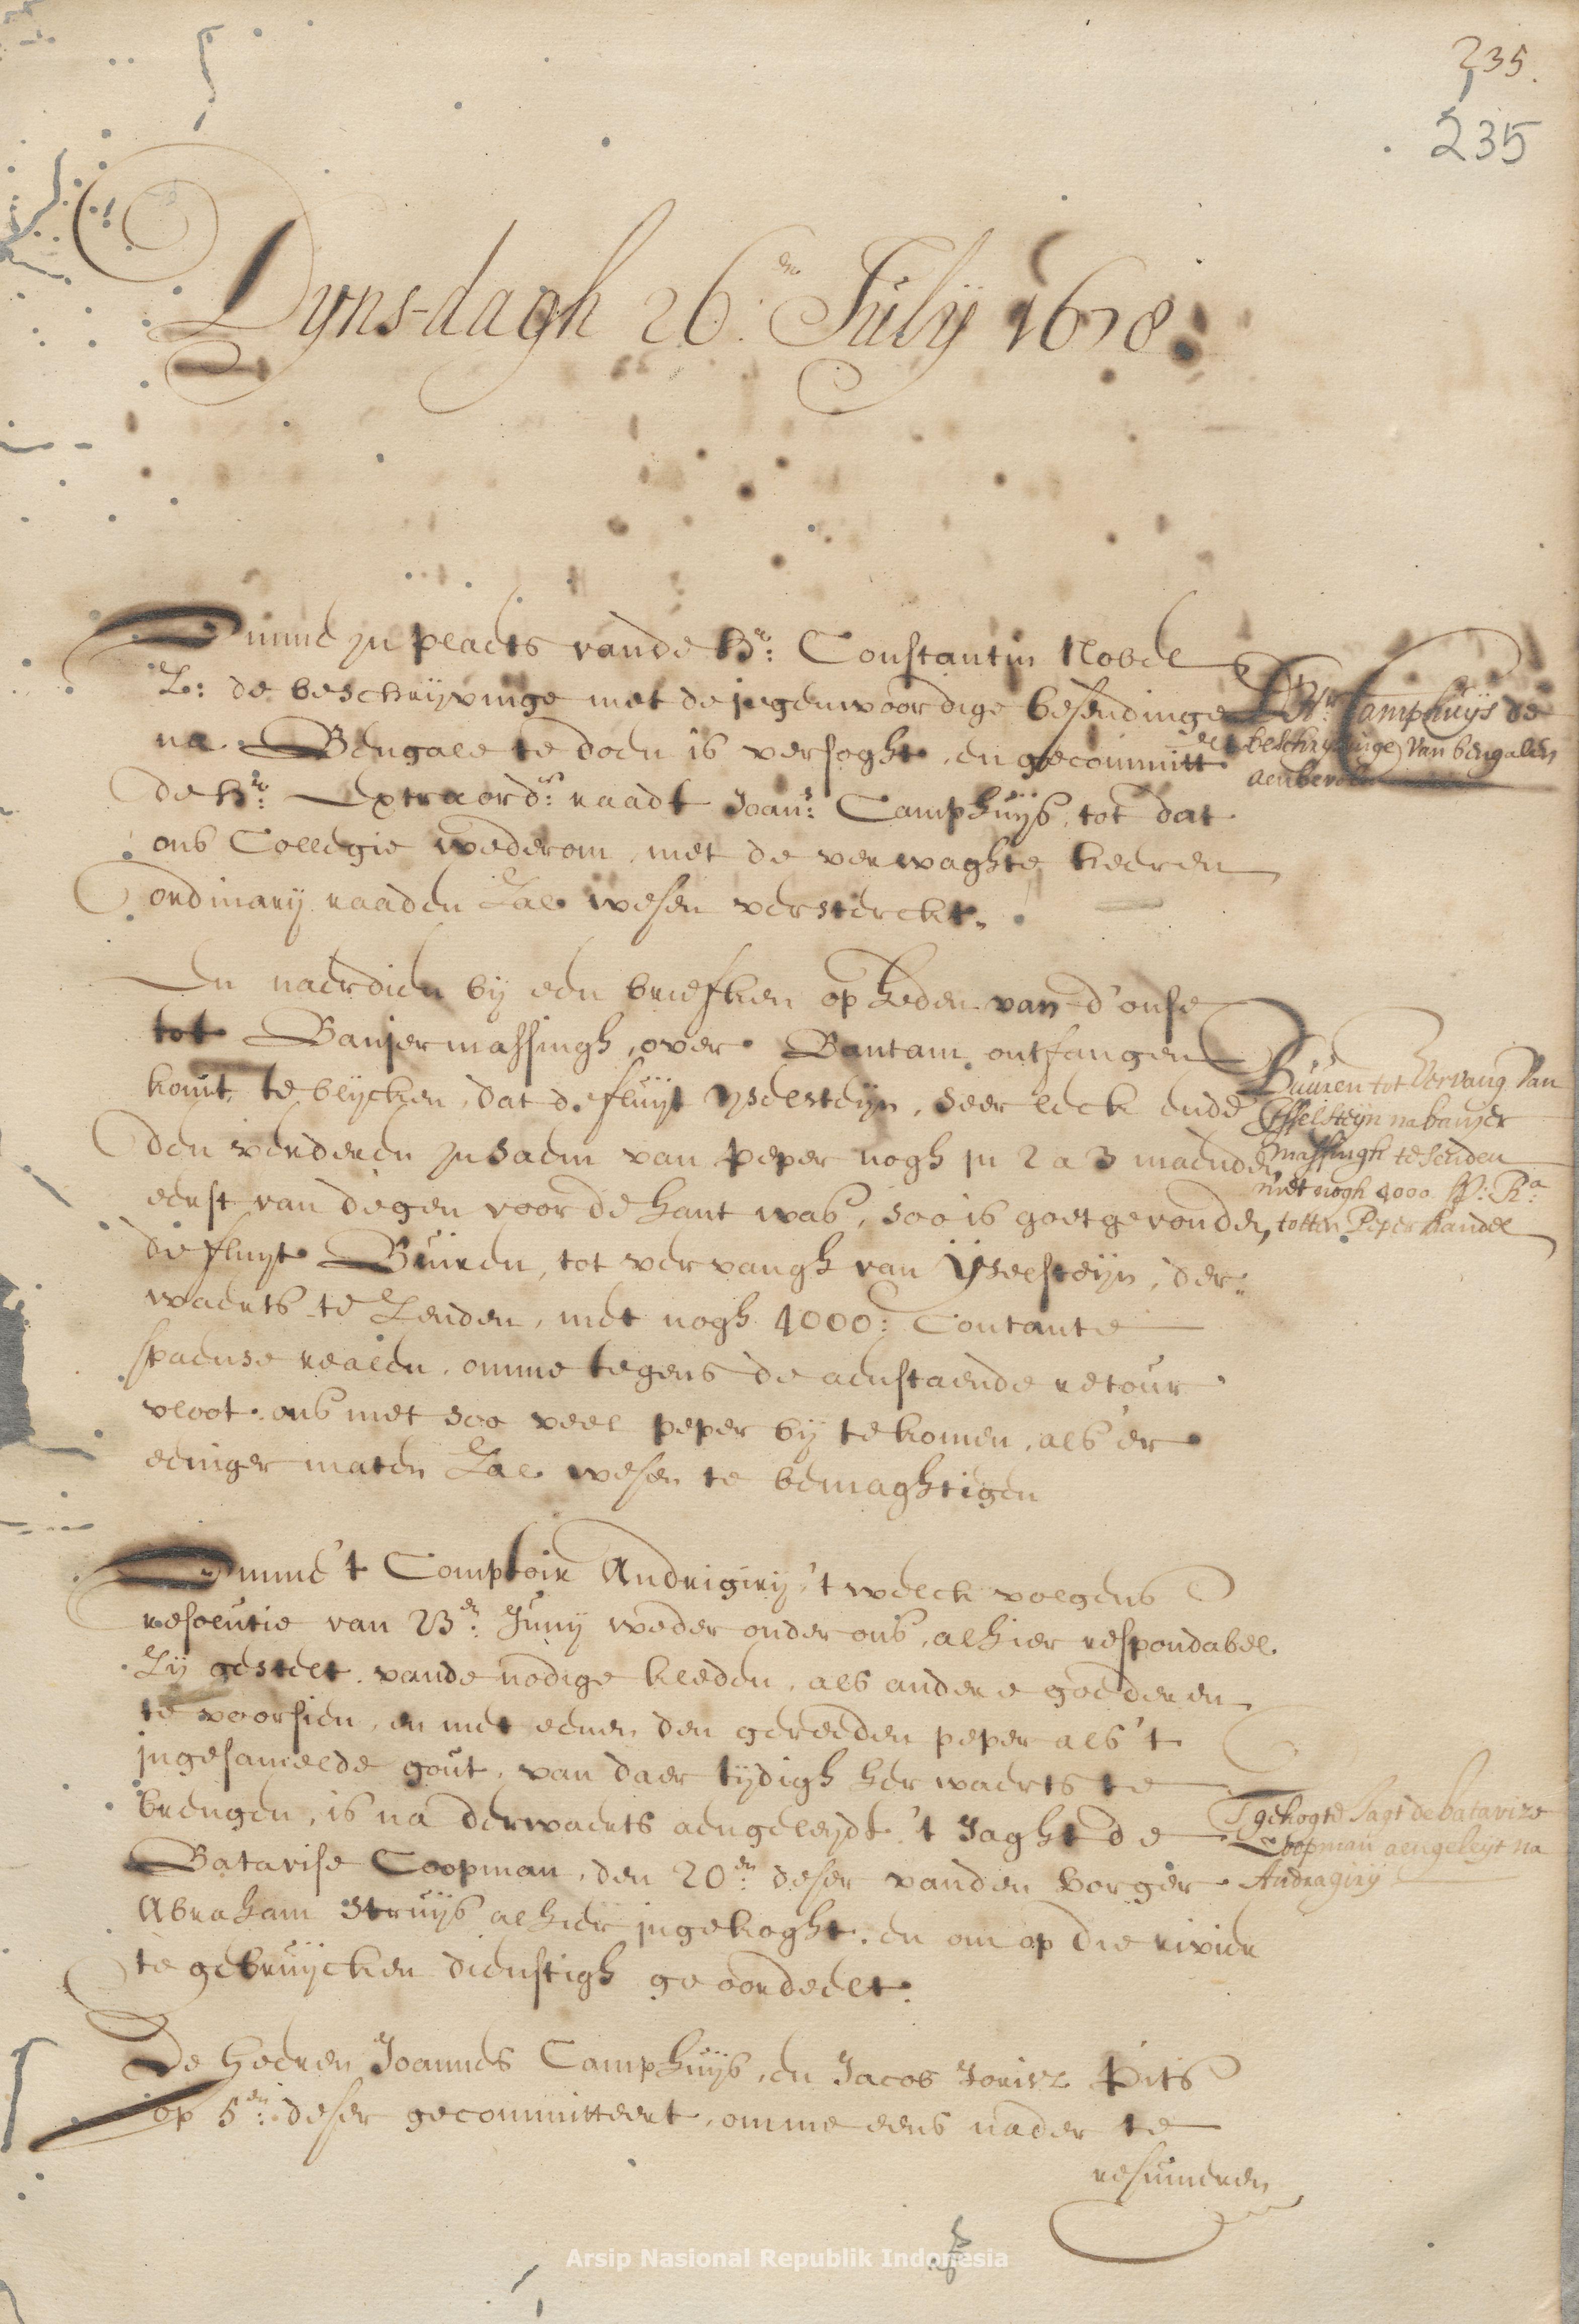 235.
235
Dynsdagh 26.en Julij 1678.
Omme in plaets vande Hr: Constantin Nobel
Z: de beschrijvinge met de jegenwoordige besendinge
na Bengale te doen is versoght, en gecommitteert
de Hr: Extraord:s raadt Joan:s Camphuijs, tot dat
ons Collegie wederom, met de verwaghte heeren
ordinarij raaden Zal wesen versterckt.
D'Hr Camphuijs de
beschrijvinge van bengalen
aenbevolen
En naerdien bij een briefken op heden van d'onse
tot Banjermassingh, over Bantam ontfangen
komt te blijcken, dat de fluijt Yselsteijn, seer leck ende
den verderen insaem van peper nogh in 2 a 3 maenden
eerst van degen voor de hant was, soo is goetgevonden,
de fluijt Buiren, tot vervangh van Ysselsteijn, der-
waerts te Zenden, met nogh 4000: Contante
spaense realen, omme tegens de aenstaende retour
vloot, ons met soo veel peper bij te komen, als 'er
eeniger maten Zal wesen te bemaghtigen
Buuren tot Vervang van
Ysselsteijn na banjer
massingh te senden
met nogh 4000 Sp: Ra:
totten Peper handel
Omme 't Comptoir Andrigirij, 't welck volgens
resolutie van 23en: Junij weder onder ons, alhier respondabel
Zij gestelt, vande nodige kleden, als andere goederen
te voorsien, en met eenen den gereeden peper als 't
ingesamelde gout, van daer tijdigh herwaerts te
brengen, is na derwaerts aengeleijdt 't Jaght de
Batavise Coopman, den 20en: deser vanden borger
Abraham Struijs alhier ingekoght, en om op die rivier
te gebruijcken dienstigh geoordeelt.
T gekogte Jagt de batavize
Coopman aengeleijt na
Andragirij
De Heeren Joannes Camphuijs, en Jacob Jorisz Pits
op 5en: deser gecommitteert, omme eens nader te
resumeren
Arsip Nasional Republik Indonesia